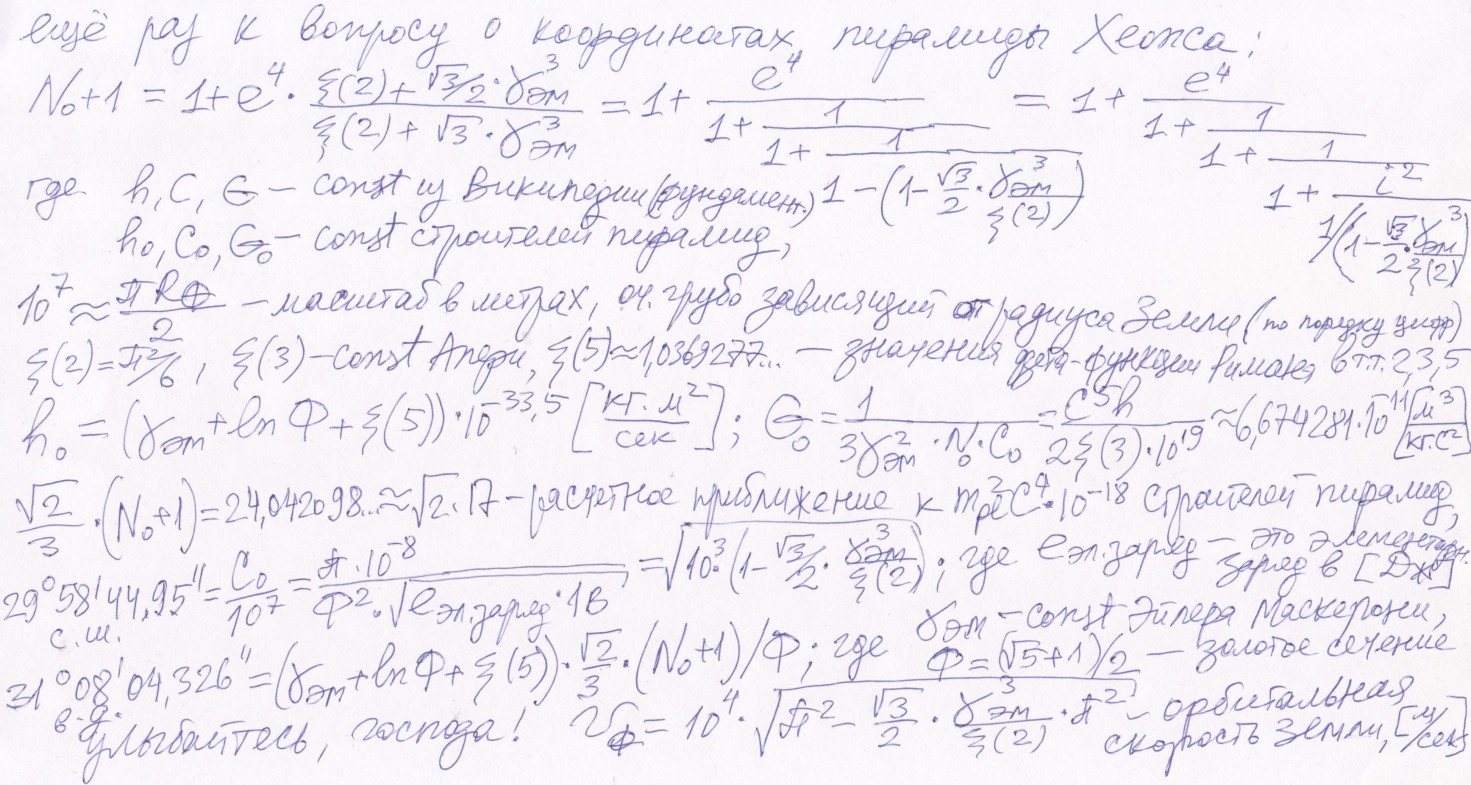 ещё раз к вопросу о координатах пирамиды Хеопса:
N₀+1 = 1+e⁴·(ξ(2)+√3/2·γ³эм)/(ξ(2)+√3·γ³эм) = 1+e⁴/(1+1/(1+1/(1-(1-√3/2·γ³эм/ξ(2))))) = 1+e⁴/(1+1/(1+1/(1+i²/(1/(1-√3/2·γ³эм/ξ(2))))))
где h, C, G – const из Википедии (фундамент.)
h₀, C₀, G₀ – const строителей пирамид,
10⁷ ≈ πR⊕/2 – масштаб в метрах, оч. грубо зависящий от радиуса Земли (по порядку цифр)
ξ(2)=π²/6, ξ(3)-const Апери, ξ(5)≈1,0369277... – значения дзета-функции Римана в т.т. 2,3,5
h₀ = (γэм+lnФ+ξ(5))·10⁻³³,⁵ [кг·м²/сек]; G₀ = 1/(3γ²эм·N₀·C₀) = C⁵h/(2ξ(3)·10¹⁹) ≈ 6,674281·10⁻¹¹ [м³/кг·с²]
√2/3·(N₀+1)=24,042098...≈√2·17 – расчетное приближение к m²peC⁴·10⁻¹⁸ строителей пирамид,
29°58'44,95" с.ш. = C₀/10⁷ = π·10⁻⁸/(Ф²·√(eэл.заряд·1В)) = √(10³·(1-√3/2·γ³эм/ξ(2))); где eэл.заряд – это элементарн. заряд в [Дж]
31°08'04,326" в.д. = (γэм+lnФ+ξ(5))·√2/3·(N₀+1)/Ф; где γэм – const Эйлера Маскерони, Ф=(√5+1)/2 – золотое сечение
улыбайтесь, господа! V⊕ = 10⁴·√(π²-√3/2·γ³эм/ξ(2)·π²) – орбитальная скорость Земли, [м/сек]